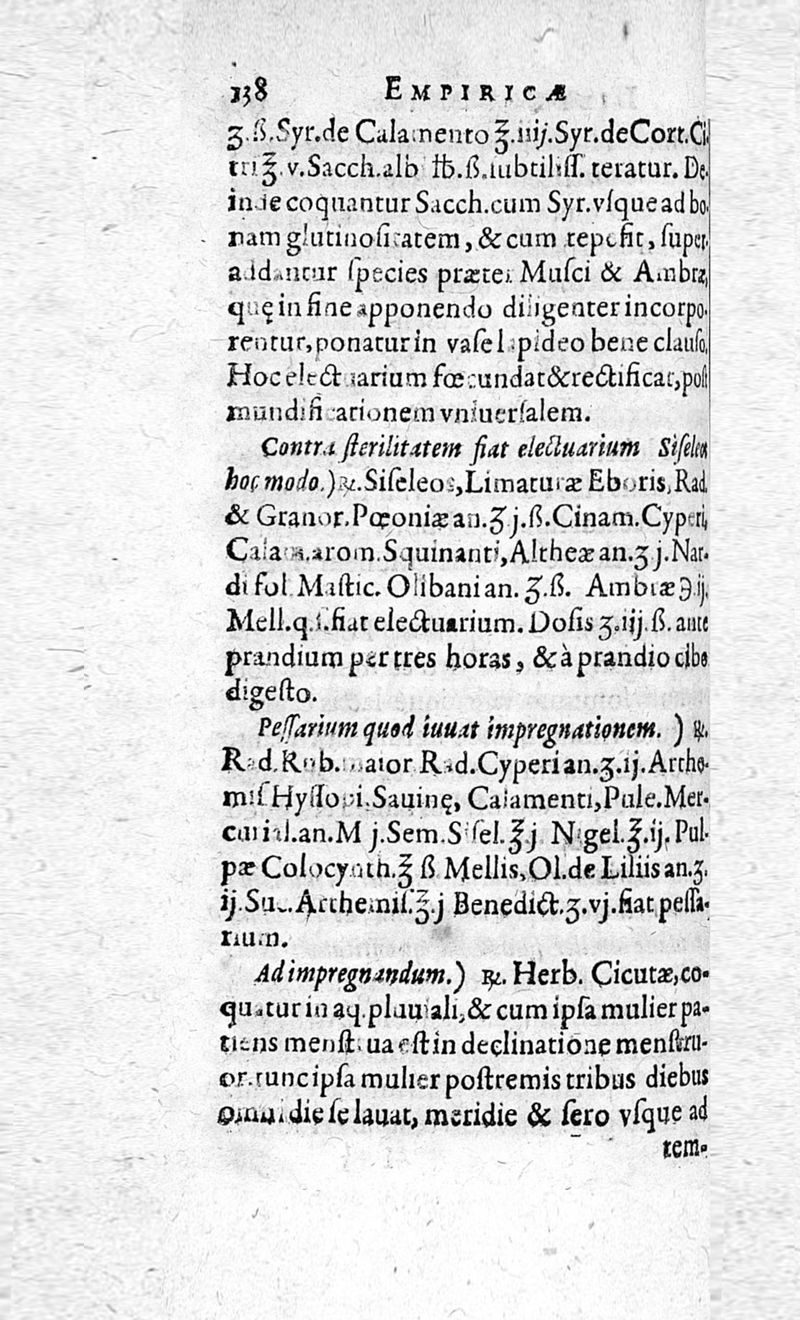 138 EMPIRICÆ
ʒ.ß.Syr.de Calamento ℥.iiij.Syr.de Cort.Ci-
tri ℥.v.Sacch.alb ℔.ß.subtiliſſ. teratur. De-
inde coquantur Sacch.cum Syr.vſque ad bo-
nam glutinoſitatem, & cum tepeſit, ſuper-
addantur ſpecies præter Muſci & Ambræ,
quę in fine apponendo diligenter incorpo-
rentur, ponatur in vaſe lapideo bene clauſo,
Hoc electuarium fœcundat & rectificat, poſt
mundificationem vniuerſalem.
Contra ſterilitatem fiat electuarium Siſeleos
hoc modo.) ℞.Siſeleos, Limaturæ Eboris, Rad.
& Granor.Pœoniæ an.ʒ j.ß.Cinam.Cyperi,
Calam.arom.Squinanti, Altheæ an.ʒ j.Nar-
di fol Maſtic. Olibani an. ʒ.ß. Ambræ ℈.ij.
Mell.q.ſ.fiat electuarium. Doſis ʒ.iij.ß. ante
prandium per tres horas, & à prandio cibo
digeſto.
Peſſarium quod iuuat impregnationem. ) ℞.
Rad.Rub.maior Rad.Cyperi an.ʒ.ij.Arthe-
miſ Hyſſopi.Sauinę, Calamenti, Pule.Mer-
curial.an.M j.Sem.Siſel.℥.j Nigel.℥.ij.Pul-
pæ Colocynth.℥ ß Mellis, Ol.de Liliis an.ʒ.
ij Suc.Arthemiſ.℥.j Benedict.ʒ.vj.fiat peſſa-
rium.
Ad impregnandum.) ℞. Herb. Cicutæ, co-
quatur in aq.pluuiali, & cum ipſa mulier pa-
tiens menſtrua eſt in declinatione menſtru-
or.tunc ipſa mulier poſtremis tribus diebus
omni die ſe lauat, meridie & ſero vſque ad
tem-